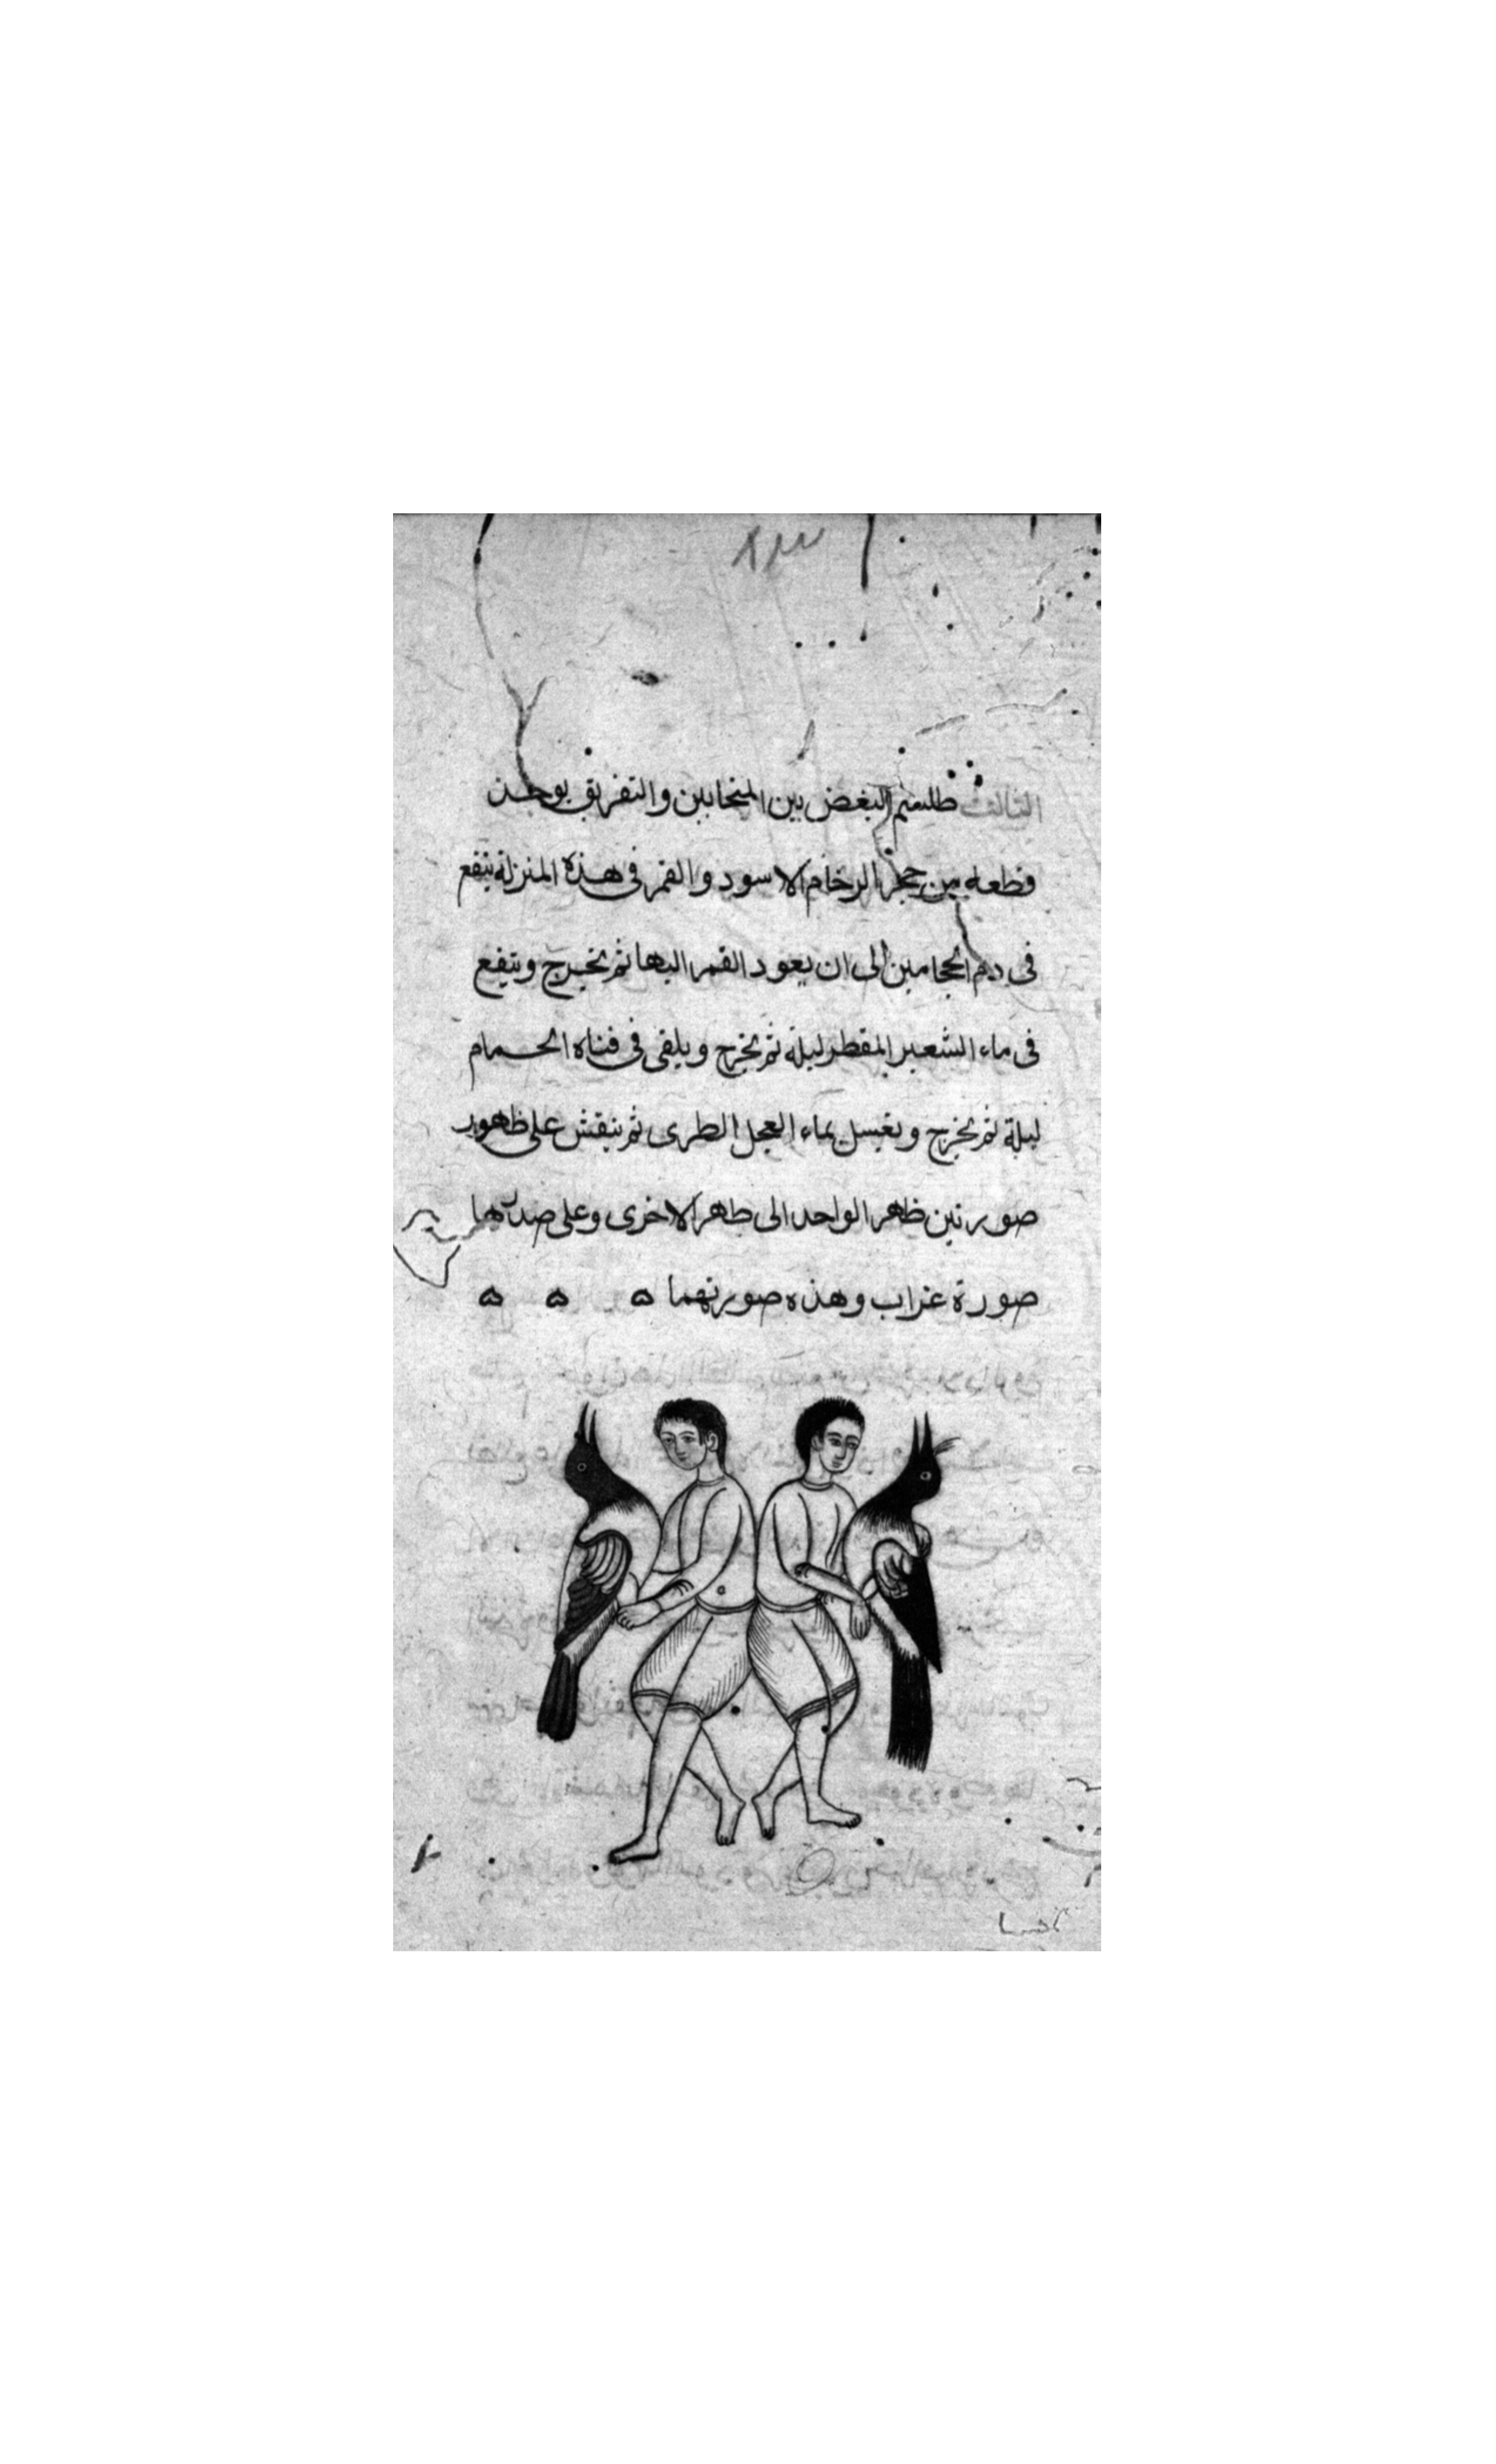 ٨٣
الثالث طلسم البغض بين المتحابين والتفريق يوخذ
قطعه من حجر الرخام الاسود والقمر فى هذه المنزلة ينقع
فى دم الحجامين الى ان يعود القمر اليها ثم تخرج وينقع
فى ماء الشعير المقطر ليلة ثم تخرج ويلقى فى قناة الحمام
ليلة ثم تخرج ويغسل بماء العجل الطرى ثم ينقش على ظهور
صورتين ظهر الواحد الى ظهر الاخرى وعلى صدرهما
صورة غراب وهذه صورتهما ه ه ه